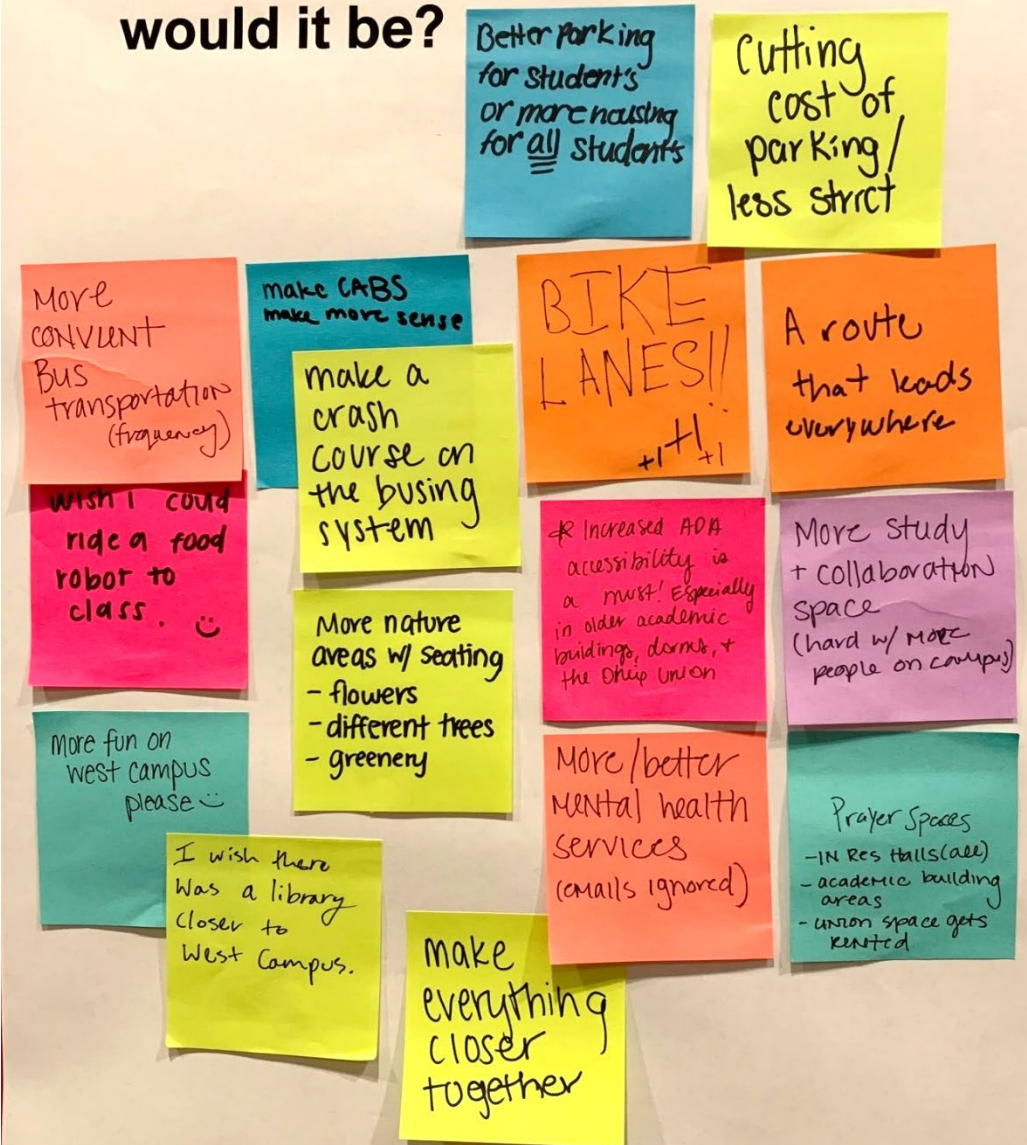 would it be?
Better Parking
for student's
or more housing
for all student's
Cutting
cost of
parking/
less strict
More
CONVIENT
Bus
transportation
(frequency)
make CABS
make more sense
make a
crash
course on
the busing
system
BIKE
LANES!!
+1 +1 +1
A route
that leads
everywhere
wish I could
ride a food
robot to
class. :)
* Increased ADA
accessibility is
a must! Especially
in older academic
buildings, dorms, +
the Ohio Union
More study
+ collaboration
space
(hard w/ more
people on campus)
More nature
areas w/ seating
- flowers
- different trees
- greenery
More fun on
west campus
please :)
I wish there
was a library
closer to
West Campus.
More/better
mental health
services
(emails ignored)
Prayer Spaces
-IN Res Halls (all)
- academic building
areas
- union space gets
rented
make
everything
closer
together